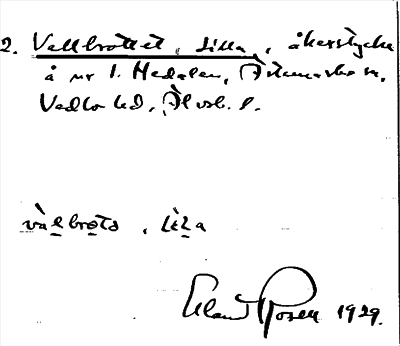 2. Vallbrottet, Lilla, åkerstycke
å nr 1. Hedalen,
Vedbo hd, Älvsb. l.
valbrots, lila
Claes Rosén 1929.